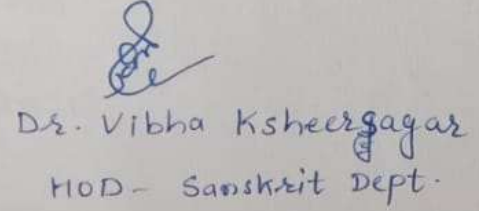 Dr. Vibha Ksheersagar
HOD - Sanskrit Dept.